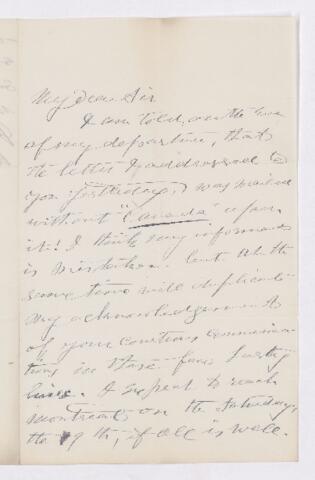 My dear Sir
I am told, on the eve
of my departure, that
the letter I addressed to
you yesterday, was mailed
without "Canada" upon
it! I think my informant
is mistaken. but at the
same time will duplicate
my acknowledgements
of your courteous communica-
tions in these few hasty
lines. I expect to reach
Montreal on the Saturday,
the 19th, if all is well.